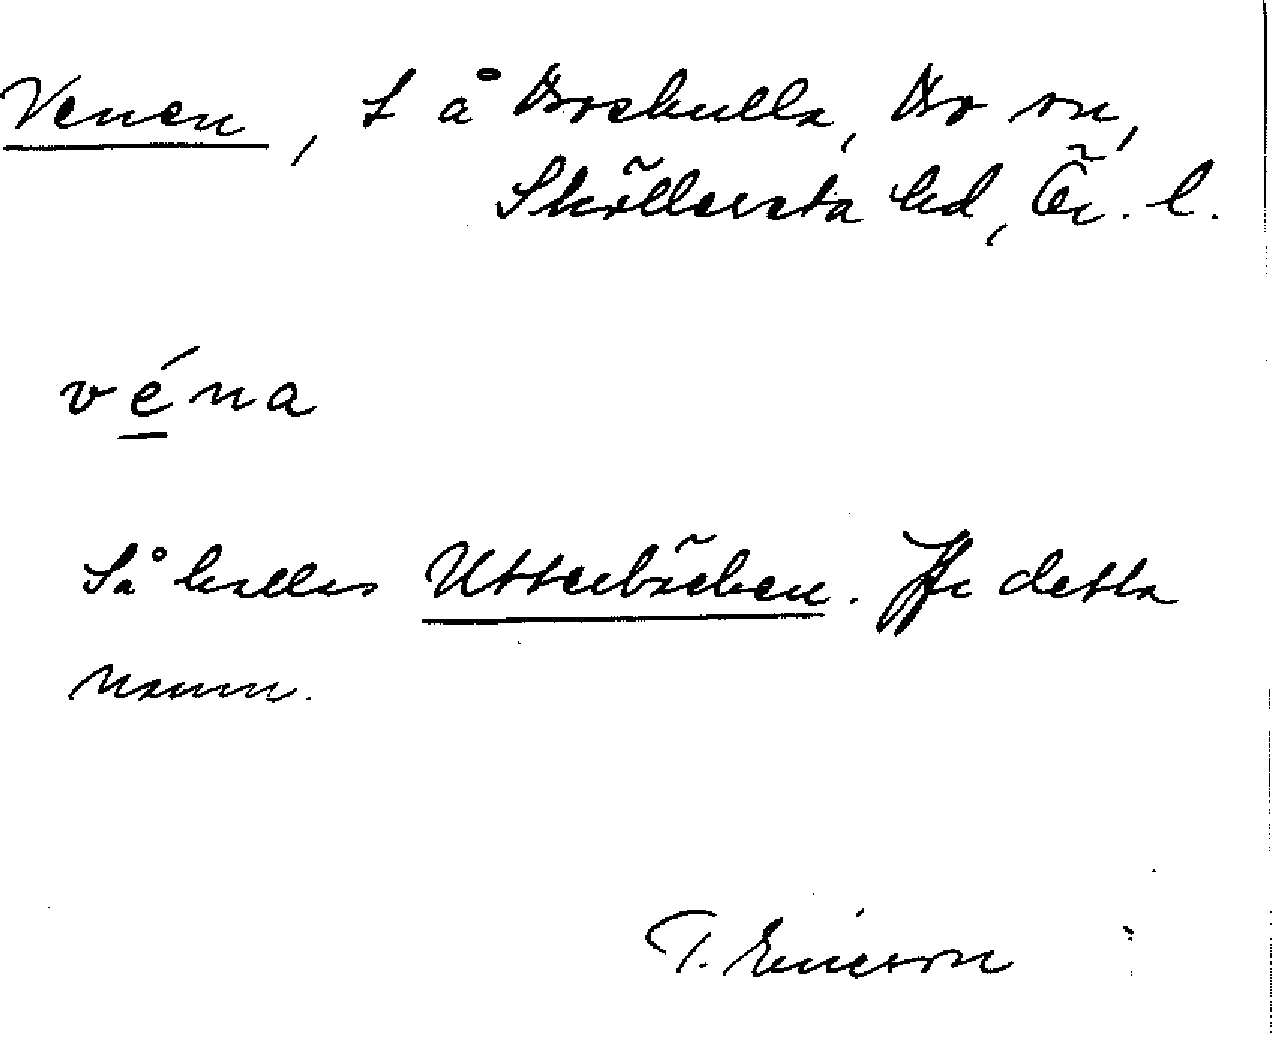 Venen, t å Broskulla, Bo sn,
Sköllersta hd, Ör. l.
véna
Så kallas Utterbäcken. Jfr detta
namn.
T. Ericson